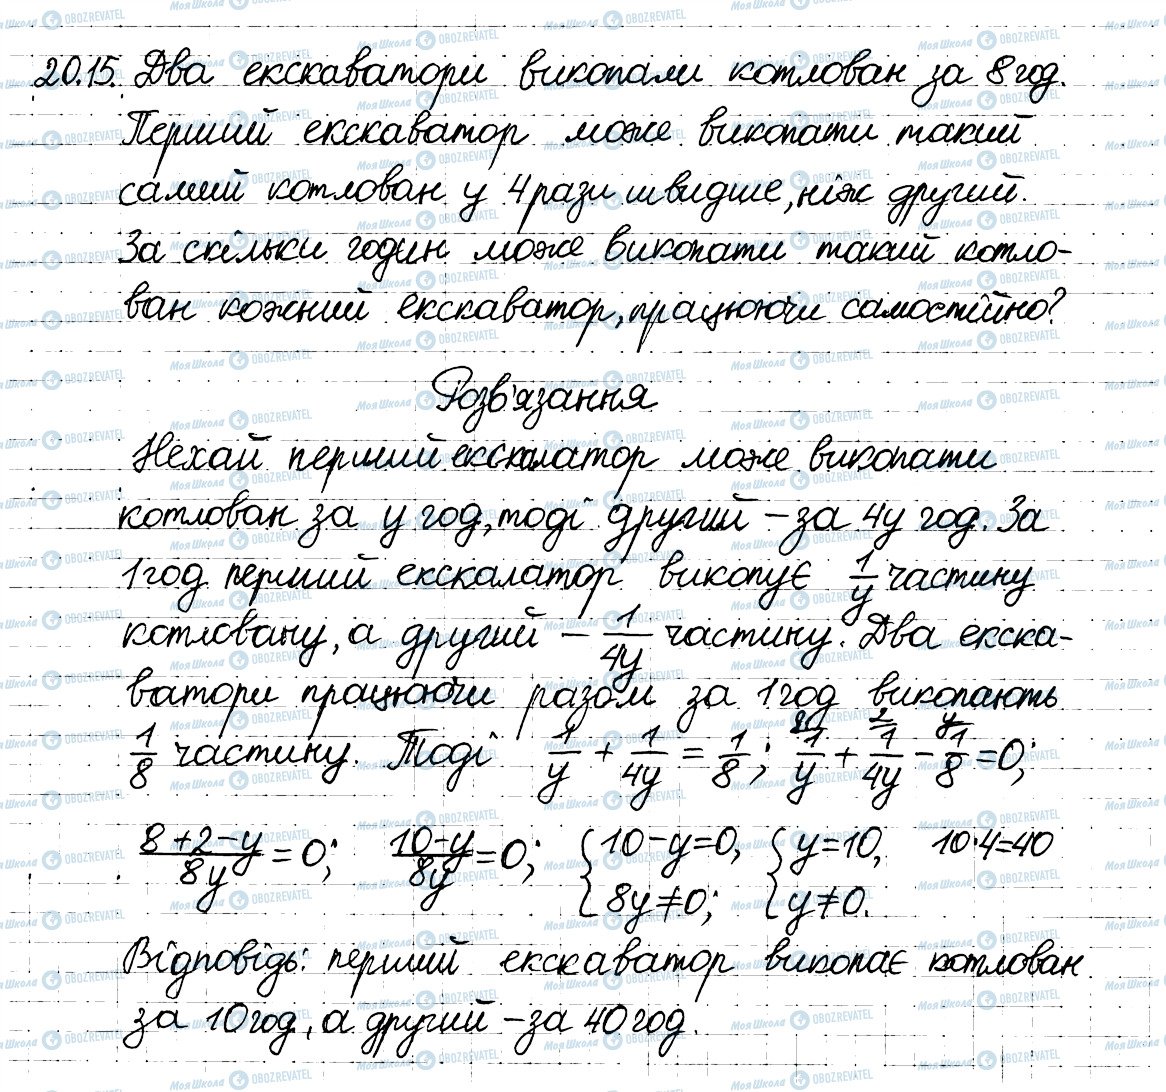 20.15. Два екскаватори викопали котлован за 8 год.
Перший екскаватор може викопати такий
самий котлован у 4 рази швидше, ніж другий.
За скільки годин може викопати такий котло-
ван кожний екскаватор, працюючи самостійно?
Розв'язання
Нехай перший екскалатор може викопати
котлован за y год, тоді другий – за 4y год. За
1 год перший екскалатор викопує 1/y частину
котловану, а другий – 1/4y частину. Два екска-
ватори працюючи разом за 1 год викопають
1/8 частину. Тоді 1/y + 1/4y = 1/8; 8\1/y + 2\1/4y – y\1/8 = 0;
8+2–y/8y = 0; 10–y/8y = 0; { 10–y=0, 8y≠0; { y=10, y≠0. 10·4=40
Відповідь: перший екскаватор викопає котлован
за 10 год, а другий – за 40 год.